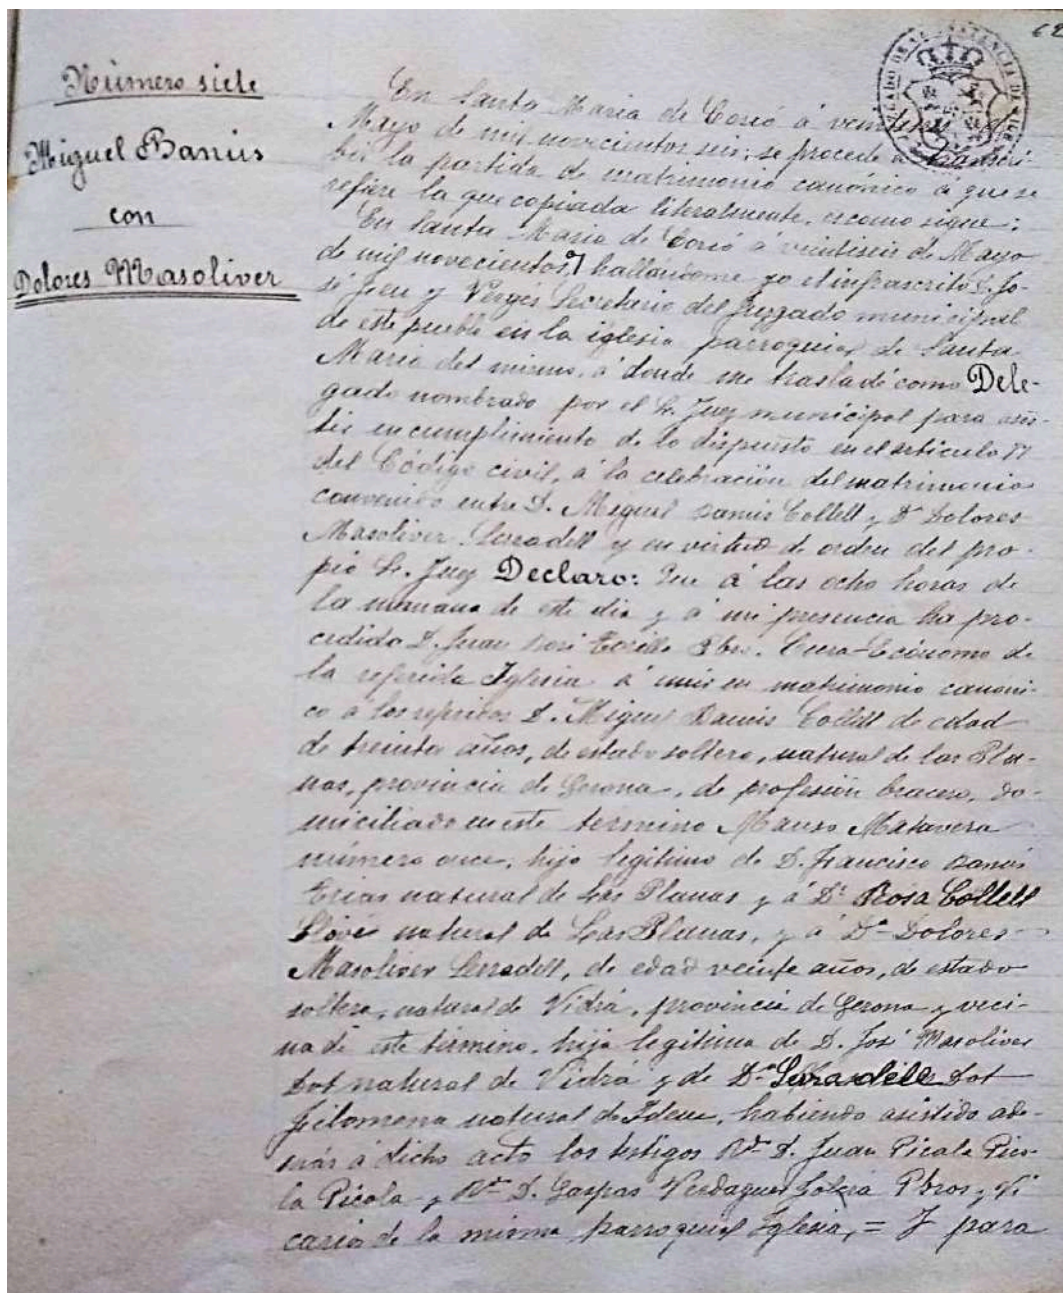 62
Número siete
Miguel Banús
con
Dolores Masoliver
En Santa Maria de Corcó á
Mayo de mil novecientos seis; se procede a transcri-
bir la partida de matrimonio canónico á que se
refiere la que copiada literalmente, es como sigue:
En Santa Maria de Corcó á veintiseis de Mayo
de mil novecientos hallándome yo el infrascrito D. Jo-
sé y Vergés Secretario del Juzgado municipal
de este pueblo en la iglesia parroquial de Santa
Maria del mismo, á donde me trasladé como Dele-
gado nombrado por el Sr. Juez municipal para asis-
tir en cumplimiento de lo dispuesto en el artículo 77
del Código civil, á la celebración del matrimonio
convenido entre D. Miguel Banús Collell y Dª Dolores
Masoliver Serradell y en virtud de orden del pro-
pio Sr. Juez Declaro: Que á las ocho horas de
la mañana de este dia y á mi presencia ha pro-
cedido D. Juan Pbro. Cura-Ecónomo de
la referida Iglesia á unir en matrimonio canóni-
co á los referidos D. Miguel Banús Collell de edad
de treinta años, de estado soltero, natural de las Pla-
nas, provincia de Gerona, de profesión bracero, do-
miciliado en este termino Manso Matavera
número once, hijo legítimo de D. Francisco Banús
natural de Las Planas y á Dª Rosa Collell
natural de Las Planas, y á Dª Dolores
Masoliver Serradell, de edad veinte años, de estado
soltera, natural de Vidrá, provincia de Gerona y veci-
na de este término, hija legítima de D. José Masoliver
Sot natural de Vidrá y de Dª Serradell Sot
Filomena natural de Idem, habiendo asistido ade-
más á dicho acto los testigos Rdo D. Juan Picola
la Picola y Rdo D. Gaspar Verdaguer Pbros, Vi
carios de la misma parroquial Iglesia, = Y para